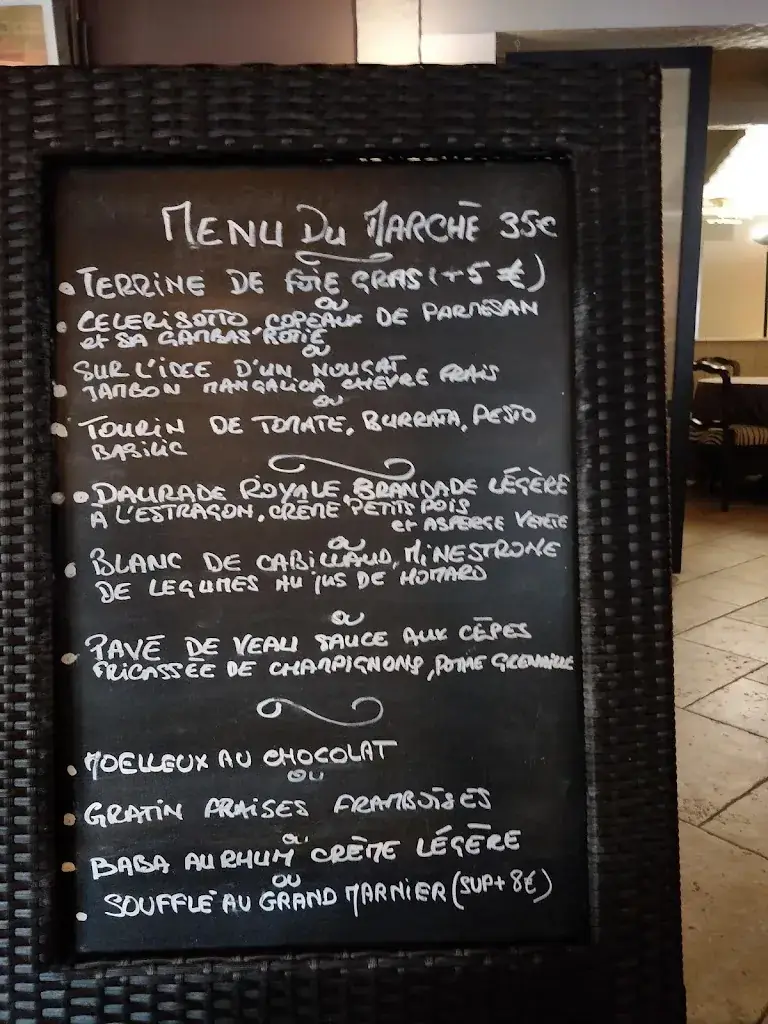 MENU DU MARCHÉ 35€
• TERRINE DE FOIE GRAS (+5 €)
OU
• CELERISOTTO COPEAUX DE PARMESAN
et SA GAMBAS ROTIE
OU
SUR L'IDEE D'UN NOUGAT
• JAMBON MANGALICA CHEVRE FRAIS
OU
• TOURIN DE TOMATE, BURRATA, PESTO
BASILIC
• DAURADE ROYALE, BRANDADE LÉGÈRE
À L'ESTRAGON, CRÈME PETITS POIS
et ASPERGE VERTE
OU
• BLANC DE CABILLAUD, MINESTRONE
DE LEGUMES AU JUS DE HOMARD
OU
• PAVÉ DE VEAU SAUCE AUX CÈPES
FRICASSÉE DE CHAMPIGNONS, POMME GRENAILLE
• MOELLEUX AU CHOCOLAT
OU
• GRATIN FRAISES FRAMBOISES
OU
• BABA AU RHUM CRÈME LÉGÈRE
OU
• SOUFFLE AU GRAND MARNIER (SUP+ 8€)